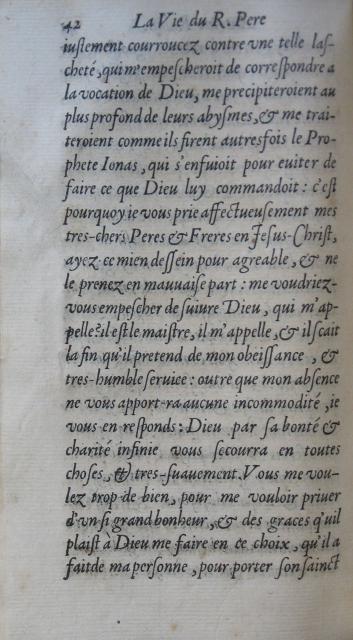 42 La Vie du R. Pere
iustement courroucez contre vne telle las-
cheté, qui m'empescheroit de correspondre a
la vocation de Dieu, me precipiteroient au
plus profond de leurs abysmes, & me trai-
teroient comme ils firent autresfois le Pro-
phete Ionas, qui s'enfuioit pour euiter de
faire ce que Dieu luy commandoit : c'est
pourquoy ie vous prie affectueusement mes
tres-chers Peres & Freres en Jesus-Christ,
ayez ce mien dessein pour agreable, & ne
le prenez en mauuaise part : me voudriez-
vous empescher de suiure Dieu, qui m'ap-
pelle? il est le maistre, il m'appelle, & il sçait
la fin qu'il pretend de mon obeissance, &
tres-humble seruice : outre que mon absence
ne vous apport-ra aucune incommodité, ie
vous en responds : Dieu par sa bonté &
charité infinie vous secourra en toutes
choses, & tres-suauement. Vous me vou-
lez trop de bien, pour me vouloir priuer
d'vn si grand bonheur, & des graces qu'il
plaist à Dieu me faire en ce choix, qu'il a
fait de ma personne, pour porter son sainct